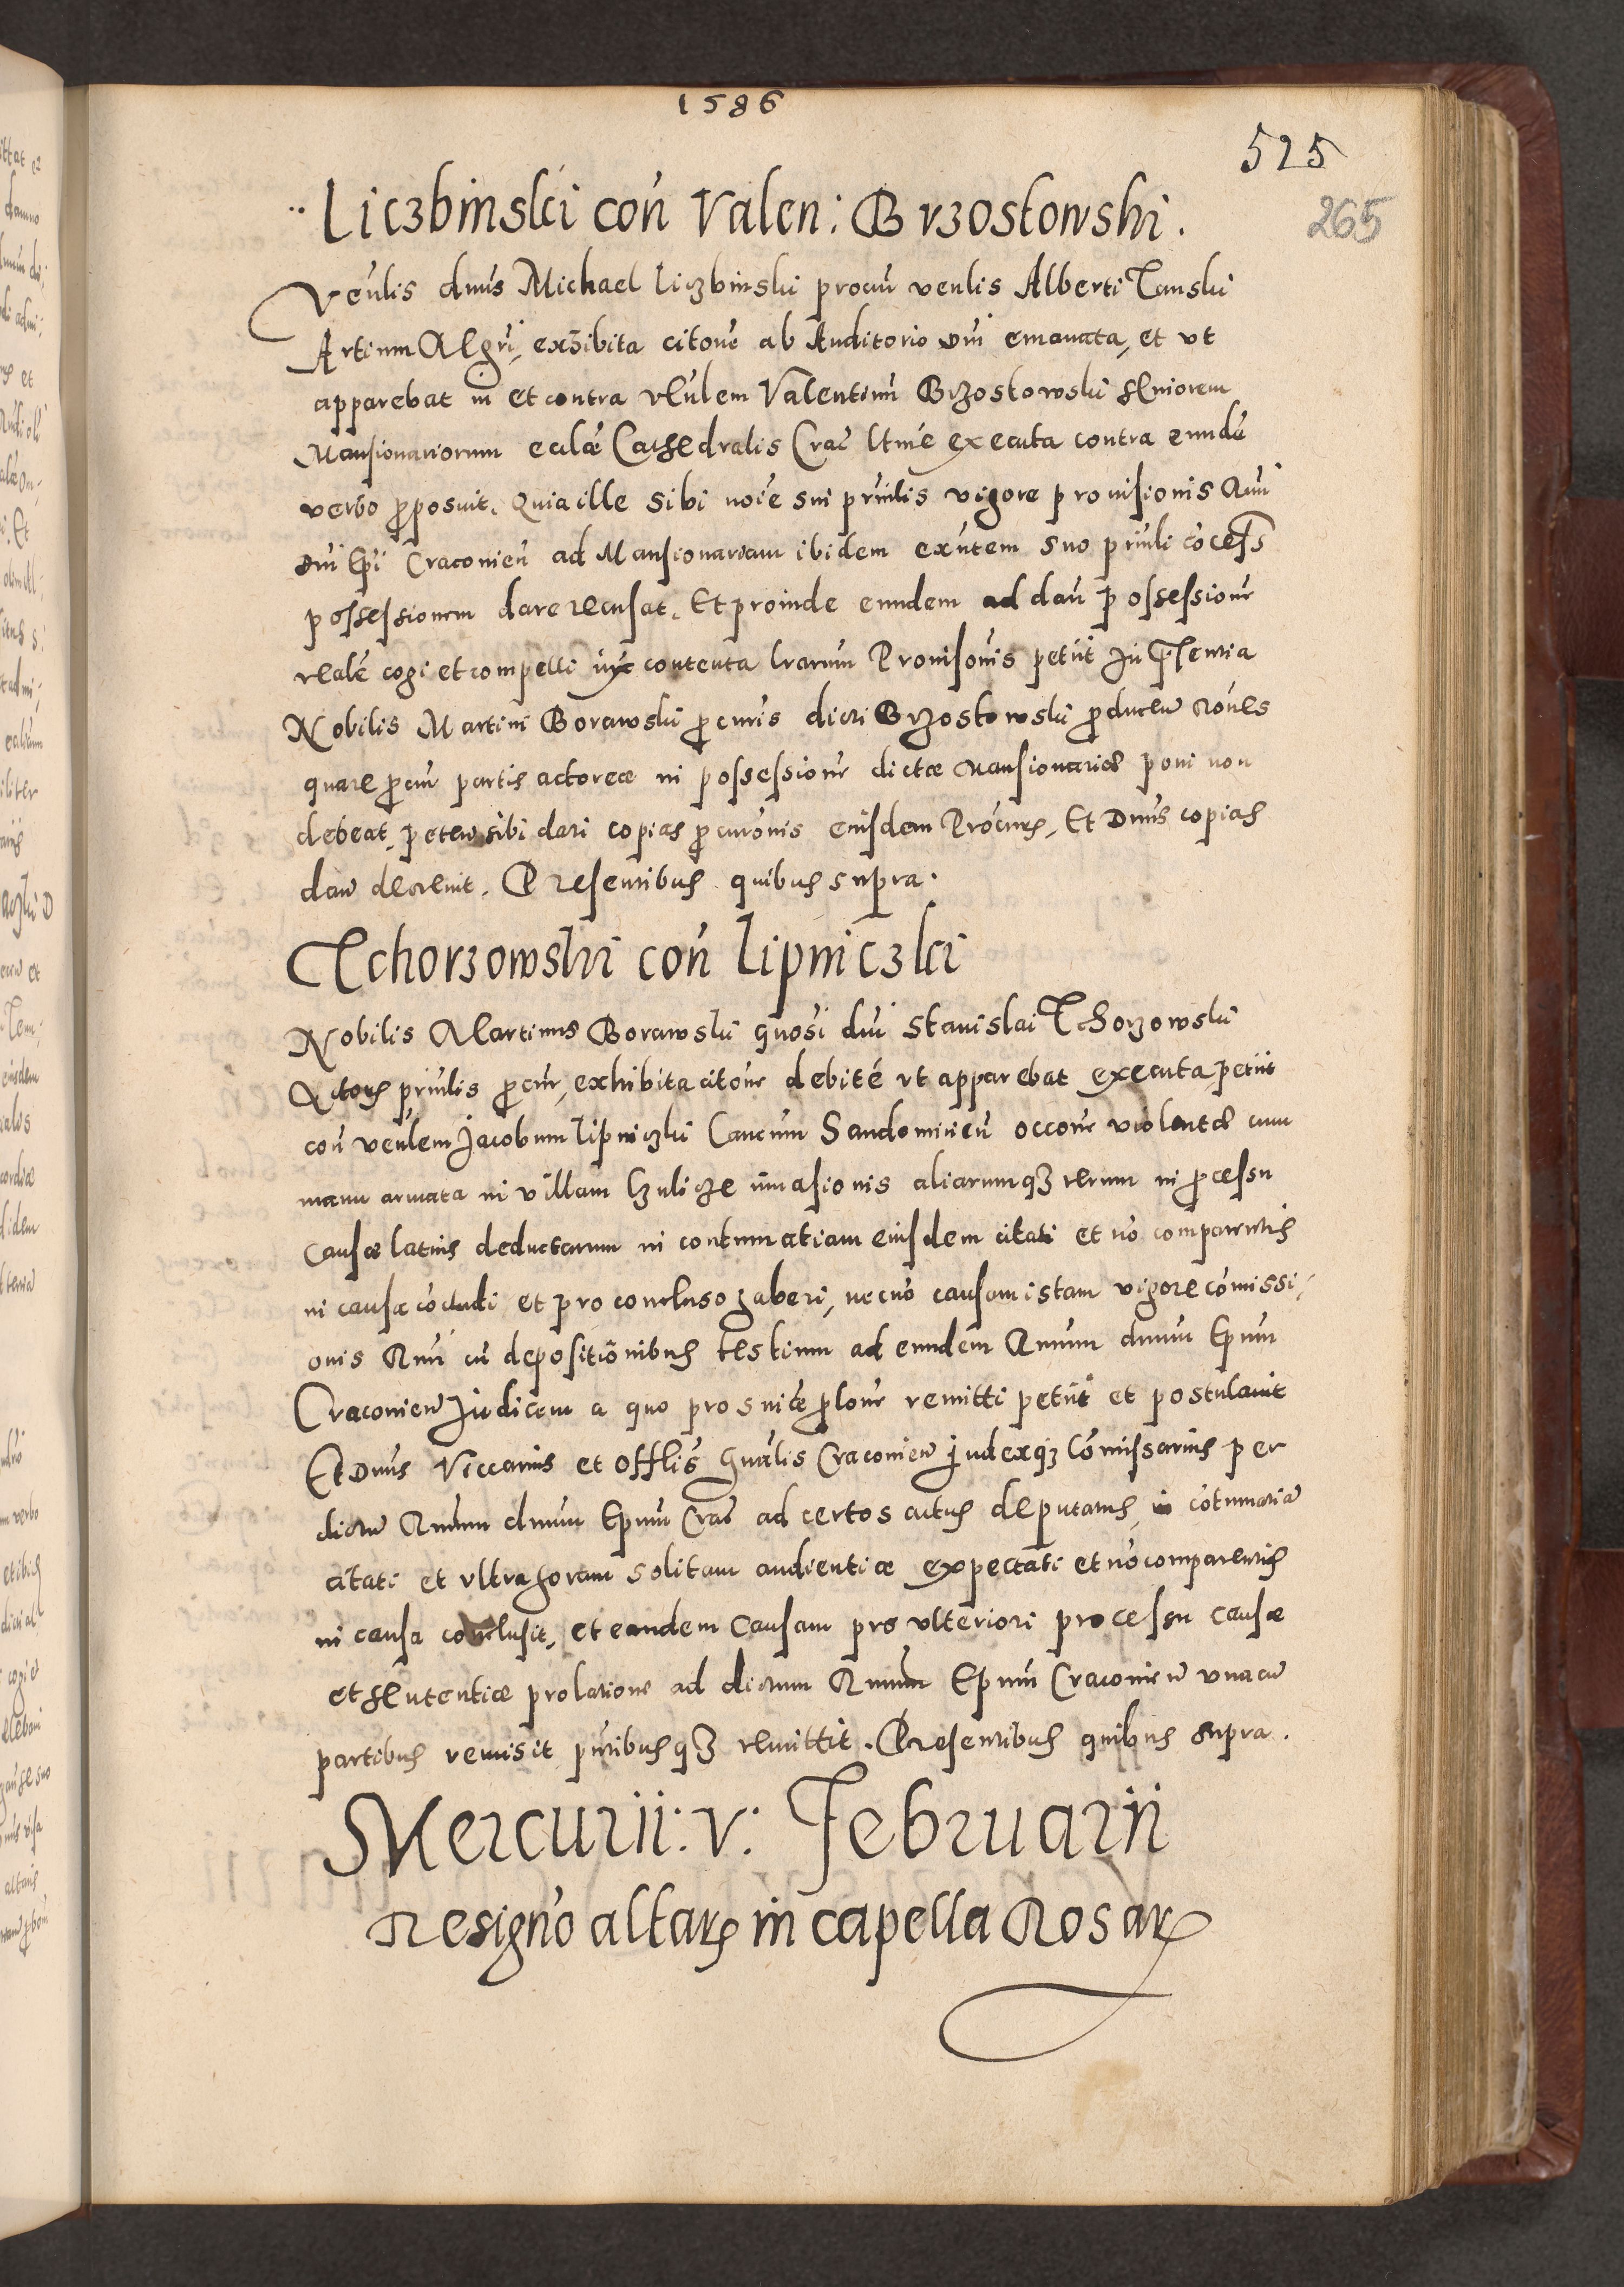 1586
525
265
Liczbinski con Valen: Brzostowski.
Venlis dnus Michael Liczbinski procur venlis Alberti Tanski
Artium Mgri, exhibita citone ab Auditorio dni emanata, et vt
apparebat in et contra vENlem Valentinu Brzostowski seniorem
Mansionariorum eclae Cathedralis Crac ltme executa contra eunde
verbo proposuit. Quia ille sibi noie sui prinlis vigore prouisionis Rmi
dni Epi Craconien ad Mansionariam ibidem exntem suo prinli cocess
possessionem dare recusat. Et proinde eundem ad dan possessione
reale cogi et compelli iux contenta lrarum Prouisonis petiit In Psentia
Nobilis Martini Borawski procuris dicti Brzostowski producen rones
quare procur partis actoreae in possessione dictae Mansionariae poni non
debeat, peten sibi dari copias procuronis eiusdem Procuris, Et Dnus copias
dan decreuit. Presentibus quibus supra.
Tchorzowski con Lipniczki
Nobilis Martinus Borawski gnosi dni Stanislai Tchorzowski
Actoris prinlis procur, exhibita citone debite vt apparebat executa, petiit
con venlem Jacobum Lipniczki Cancum Sandomirien occone violentae cum
manu armata in villam Czulicze inuasionis aliarumqz rerum in processu
causae latius deductarum in contumatiam eiusdem citati et no comparentis
in causa cocludi et pro concluso haberi, necno causam istam vigore comissi-
onis Rmi cu depositionibus testium ad eundem Rmum dnum Epum
Craconien Iudicem a quo pro snice prolone remitti petiit et postulauit
Et Dnus Viccarius et Offlis Gnalis Craconien Judexqz Comissarius per
dictu Rmum dnum Epum Crac ad certos actus deputatus, in cotumatia
citati et vltra horam solitam audientiae expectati et no comparentis
in causa conclusit, et eandem causam pro vlteriori processu causae
et sententiae prolatione ad dictum Rmum Epum Craconien vna cu
partibus remisit pntibusqz remittit. Presentibus quibus supra.
Mercurii: V: Februarii
Resigno altaris in capella Rosar